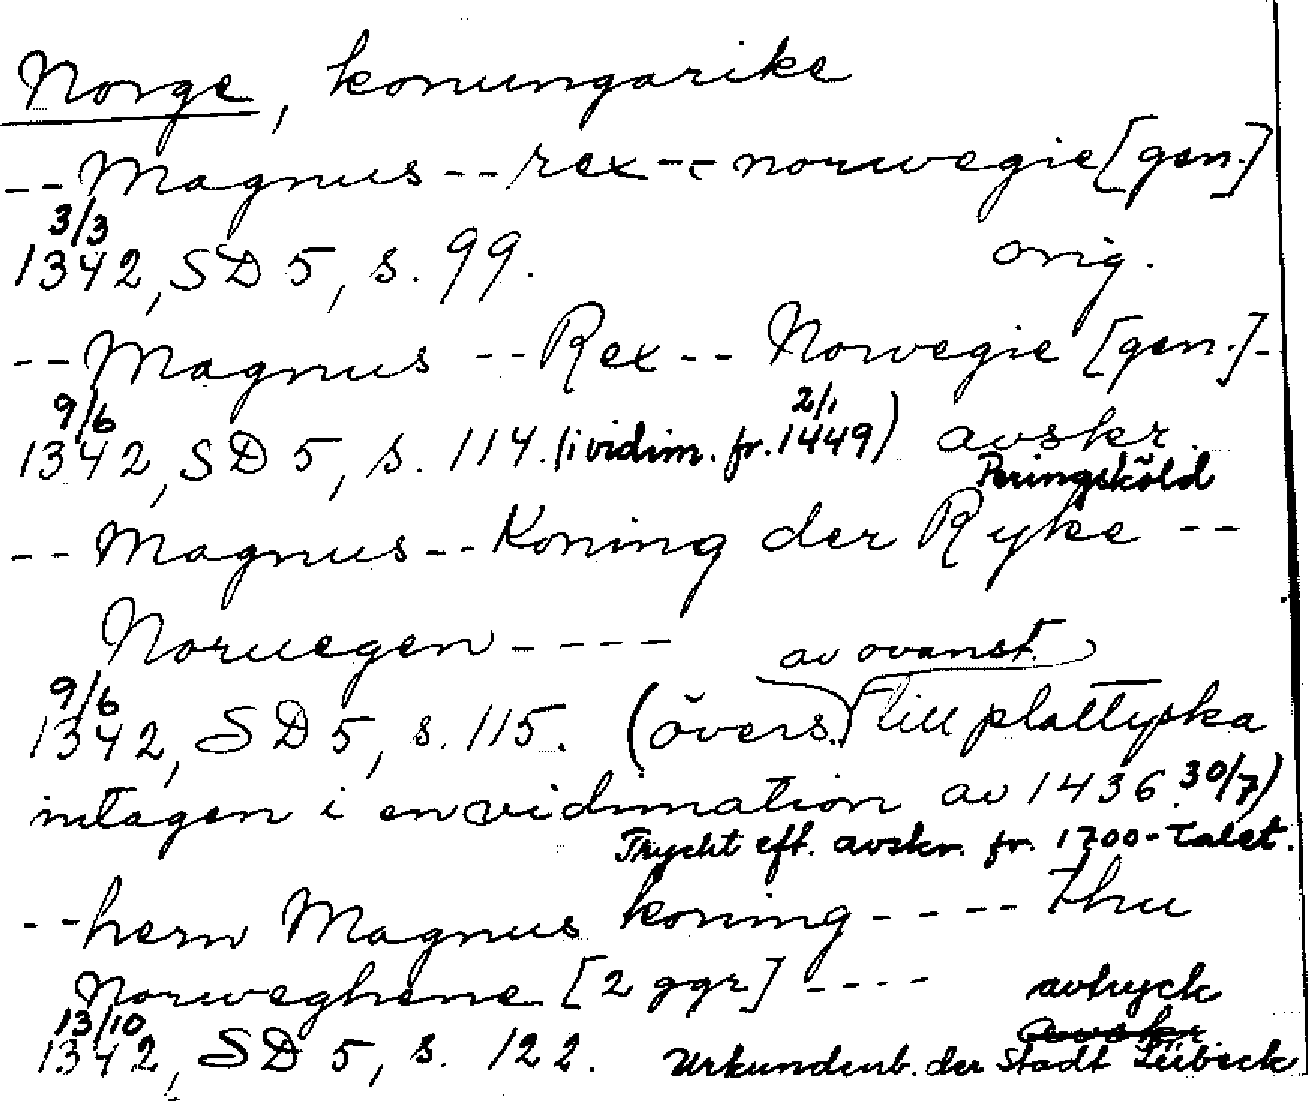 Norge, konungarike
--Magnus--rex--norwegie [gen.]
3/3
1342, SD 5, s. 99. orig.
--Magnus--Rex--Norwegie [gen.]-
9/6 2/1
1342, SD 5, s. 114. (i vidim. fr. 1449) avskr.
Peringsköld
--Magnus--Koning der Ryke--
Noruegen----
av ovanst.
9/6
1342, SD 5, s. 115. (övers.) till plattyska
intagen i en vidimation av 1436 30/7)
Tryckt eft. avskr. fr. 1700-talet.
--hern Magnus koning---- thu
Norweghene [2 ggr] ----
avtryck
13/10 avskr
1342, SD 5, s. 122. Urkundenb. der Stadt Lübeck